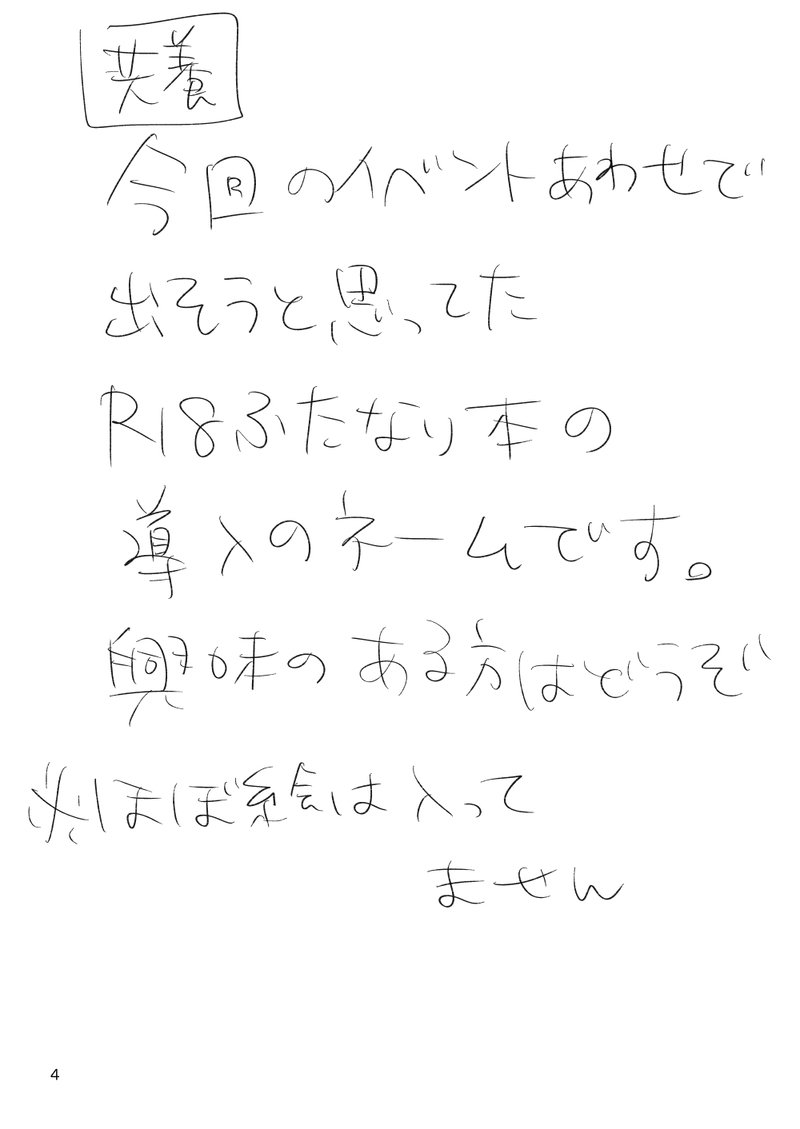 共養
今回のイベントあわせで
出そうと思ってた
R18ふたなり本の
導入のネームです。
興味のある方はどうぞ
※ほぼ絵は入って
ません
4